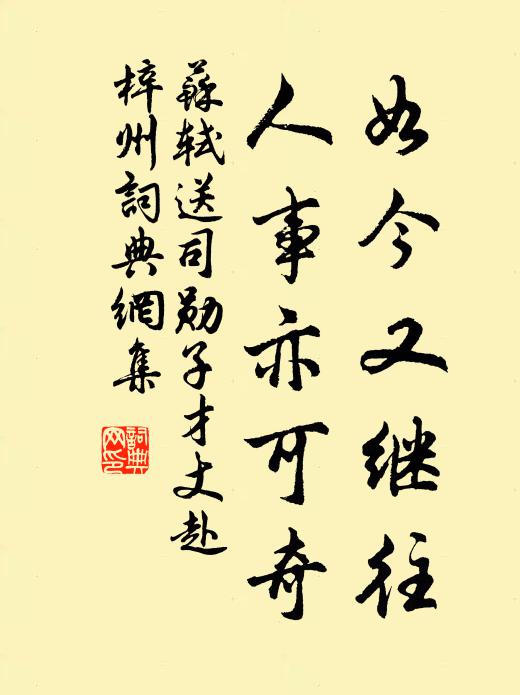 如今又继往
人事亦可奇
蘇軾送司勋子才丈赴
梓州詞典網集
詞典网印